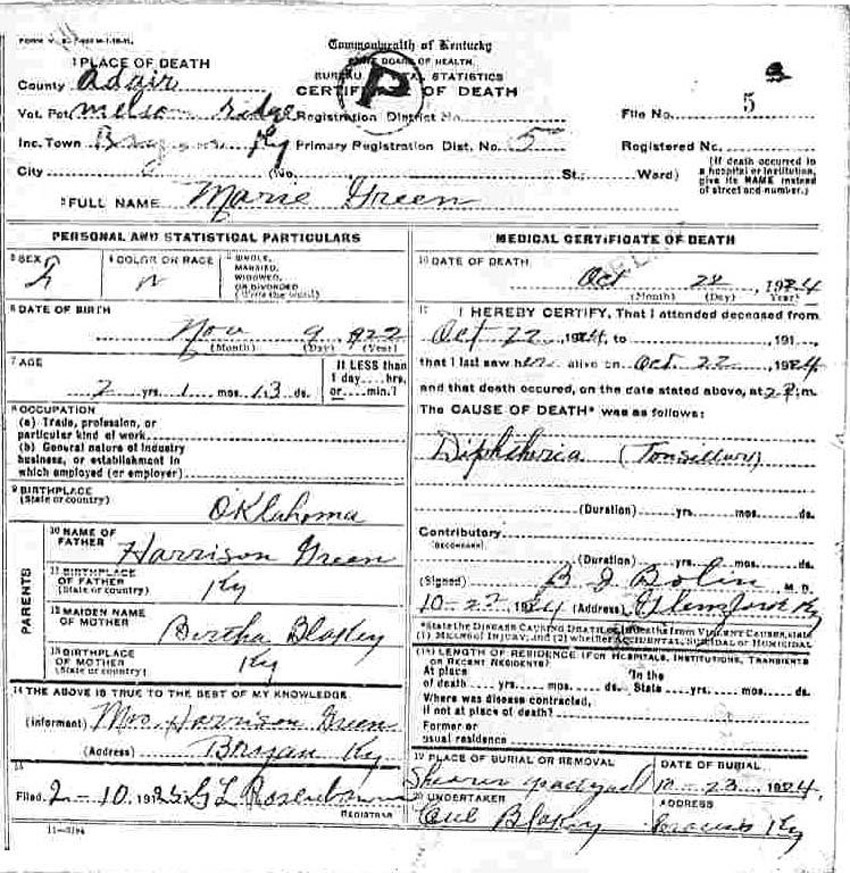 Commonwealth of Kentucky
STATE BOARD OF HEALTH
BUREAU VITAL STATISTICS
CERTIFICATE OF DEATH
P
1 PLACE OF DEATH
County Adair
Vot. Pct. Melson Ridge Registration District No.
Inc. Town Ky Primary Registration Dist. No. 5
City (No. St.; Ward)
File No. 5
Registered No.
(If death occurred in
a hospital or institution,
give its NAME instead
of street and number.)
2 FULL NAME Marie Green
PERSONAL AND STATISTICAL PARTICULARS
3 SEX F
4 COLOR OR RACE W
5 SINGLE,
MARRIED,
WIDOWED,
OR DIVORCED
(Write the word)
6 DATE OF BIRTH
Nov 9 1922
(Month) (Day) (Year)
7 AGE
2 yrs. 1 mos. 13 ds.
If LESS than
1 day....hrs.
or....min.?
8 OCCUPATION
(a) Trade, profession, or
particular kind of work
(b) General nature of industry
business, or establishment in
which employed (or employer)
9 BIRTHPLACE
(State or country)
Oklahoma
PARENTS
10 NAME OF
FATHER
Harrison Green
11 BIRTHPLACE
OF FATHER
(State or country)
Ky
12 MAIDEN NAME
OF MOTHER
Bertha Blakey
13 BIRTHPLACE
OF MOTHER
(State or country)
Ky
14 THE ABOVE IS TRUE TO THE BEST OF MY KNOWLEDGE
(Informant) Mrs. Harrison Green
(Address) Ky
15
Filed 2-10 1925 G L Rosenbaum
REGISTRAR
11-3184
MEDICAL CERTIFICATE OF DEATH
16 DATE OF DEATH
Oct 22, 1924
(Month) (Day) Year)
17 I HEREBY CERTIFY, That I attended deceased from
Oct 22, 1924, to , 191 ,
that I last saw her alive on Oct. 22, 1924
and that death occured, on the date stated above, at 2 P.m.
The CAUSE OF DEATH* was as follows:
Diphtheria (Tonsillary)
(Duration) yrs. mos. ds.
Contributory
(SECONDARY)
(Duration) yrs. mos. ds.
(Signed) B J Bolin M.D.
10-22 1924 (Address) Ky
*State the DISEASE CAUSING DEATH, or in deaths from VIOLENT CAUSES, state
(1) MEANS OF INJURY; and (2) whether ACCIDENTAL, SUICIDAL or HOMICIDAL
(18) LENGTH OF RESIDENCE (FOR HOSPITALS, INSTITUTIONS, TRANSIENTS
OR RECENT RESIDENTS)
At place
of death yrs. mos. ds.
In the
State yrs. mos. ds.
Where was disease contracted,
if not at place of death?
Former or
usual residence
19 PLACE OF BURIAL OR REMOVAL
DATE OF BURIAL
10-23, 1924,
20 UNDERTAKER
Blakey
ADDRESS
Ky